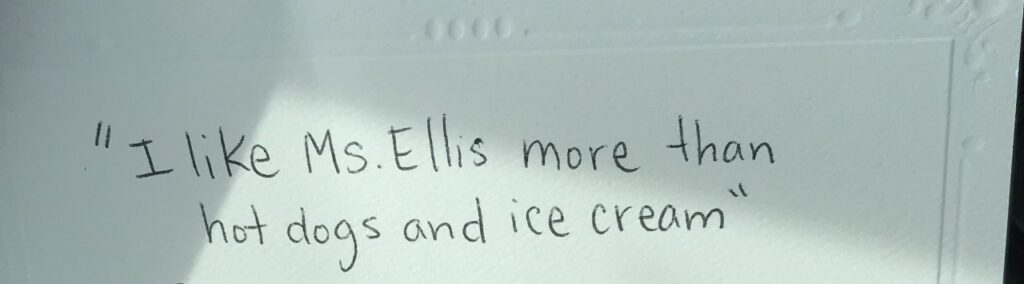 "I like Ms. Ellis more than
hot dogs and ice cream"